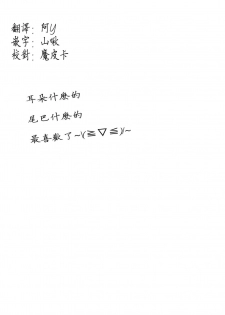 翻譯：阿Y
嵌字：山啾
校對：魔皮卡
耳朵什麼的
尾巴什麼的
最喜歡了~\(≧▽≦)/~